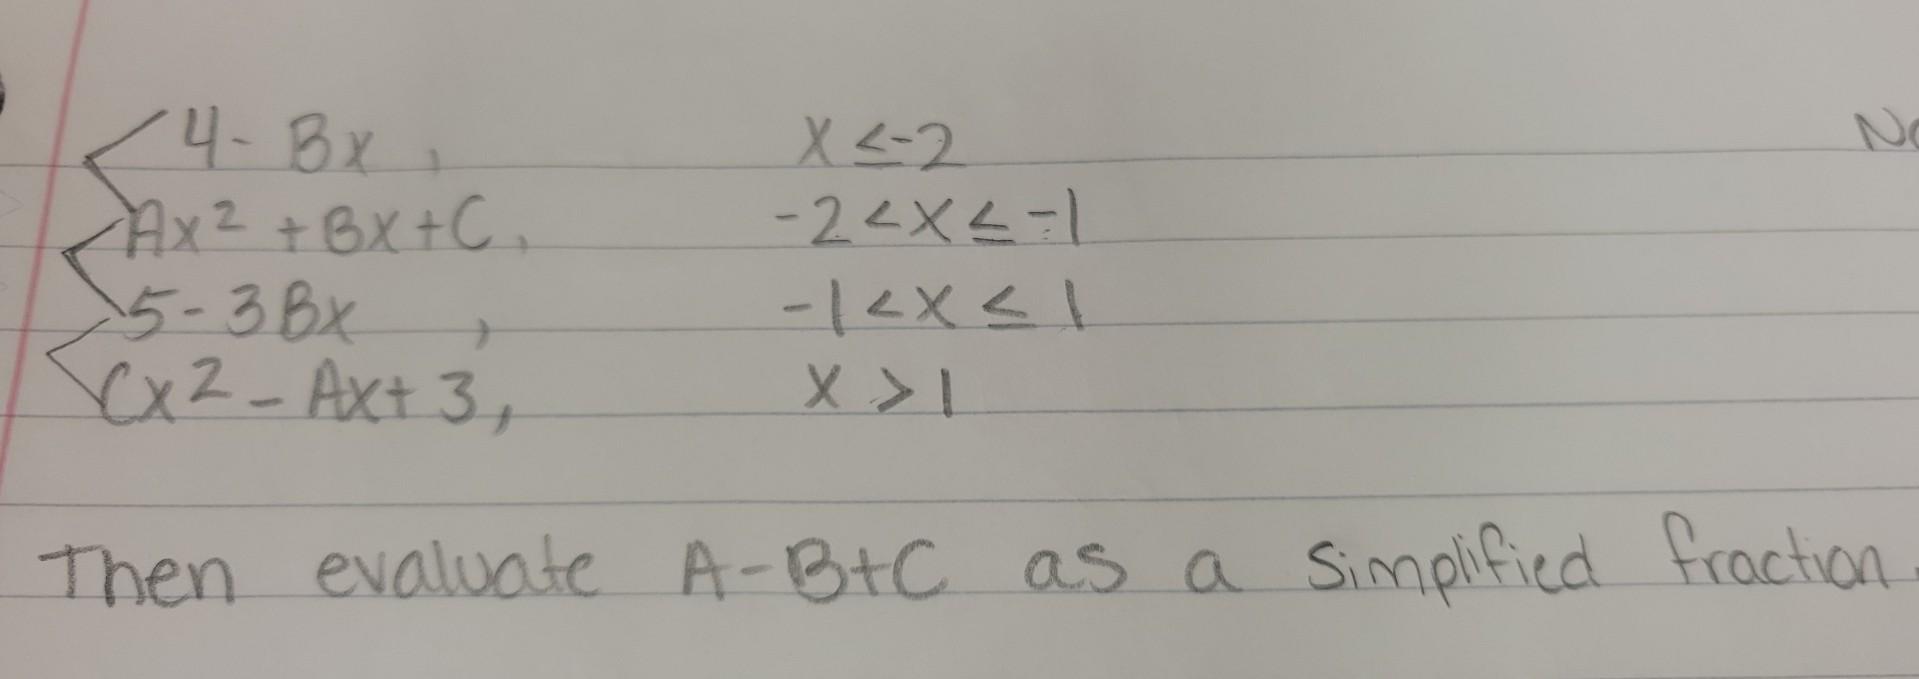 4 - Bx, x ≤ -2
Ax² + Bx + C, -2 < x ≤ -1
5 - 3Bx, -1 < x ≤ 1
Cx² - Ax + 3, x > 1
Then evaluate A - B + C as a simplified fraction.